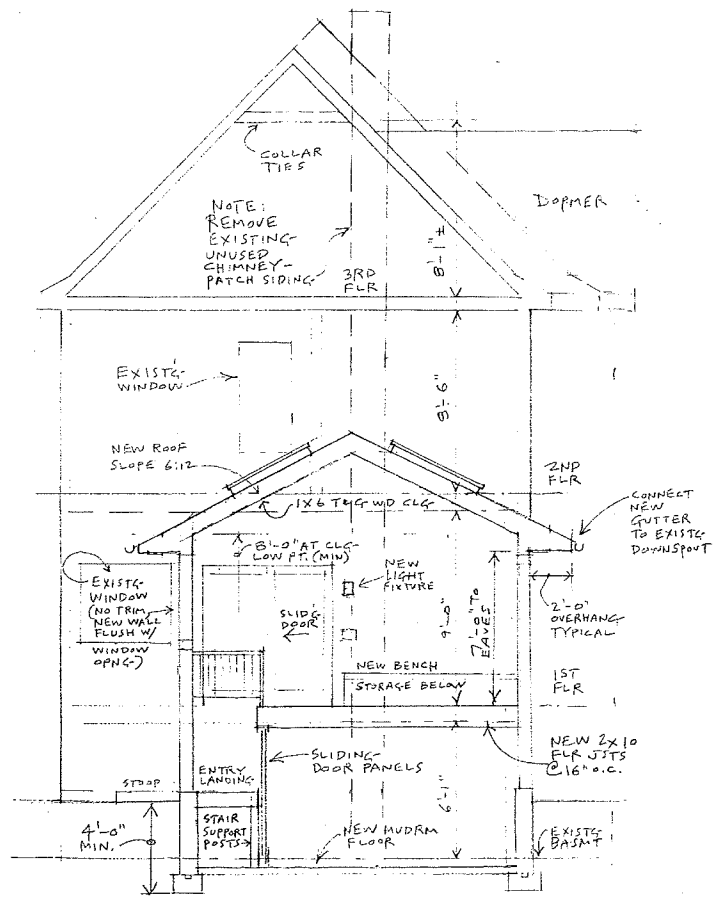 COLLAR
TIES
DORMER
NOTE:
REMOVE
EXISTING
UNUSED
CHIMNEY-
PATCH SIDING
3RD
FLR
8'-1"±
EXIST'G
WINDOW
8'-6"
NEW ROOF
SLOPE 6:12
2ND
FLR
1X6 T&G WD CLG
CONNECT
NEW
GUTTER
TO EXISTG
DOWNSPOUT
8'-0" AT CLG
LOW PT. (MIN)
EXISTG
WINDOW
(NO TRIM,
NEW WALL
FLUSH W/
WINDOW
OPNG)
NEW
LIGHT
FIXTURE
SLIDG
DOOR
9'-0"
7'-0" TO
EAVES
2'-0"
OVERHANG
TYPICAL
NEW BENCH
STORAGE BELOW
1ST
FLR
NEW 2X10
FLR JSTS
@ 16" O.C.
SLIDING
DOOR PANELS
ENTRY
LANDING
STOOP
6'-1"
4'-0"
MIN.
STAIR
SUPPORT
POSTS
NEW MUDRM
FLOOR
EXISTG
BASMT